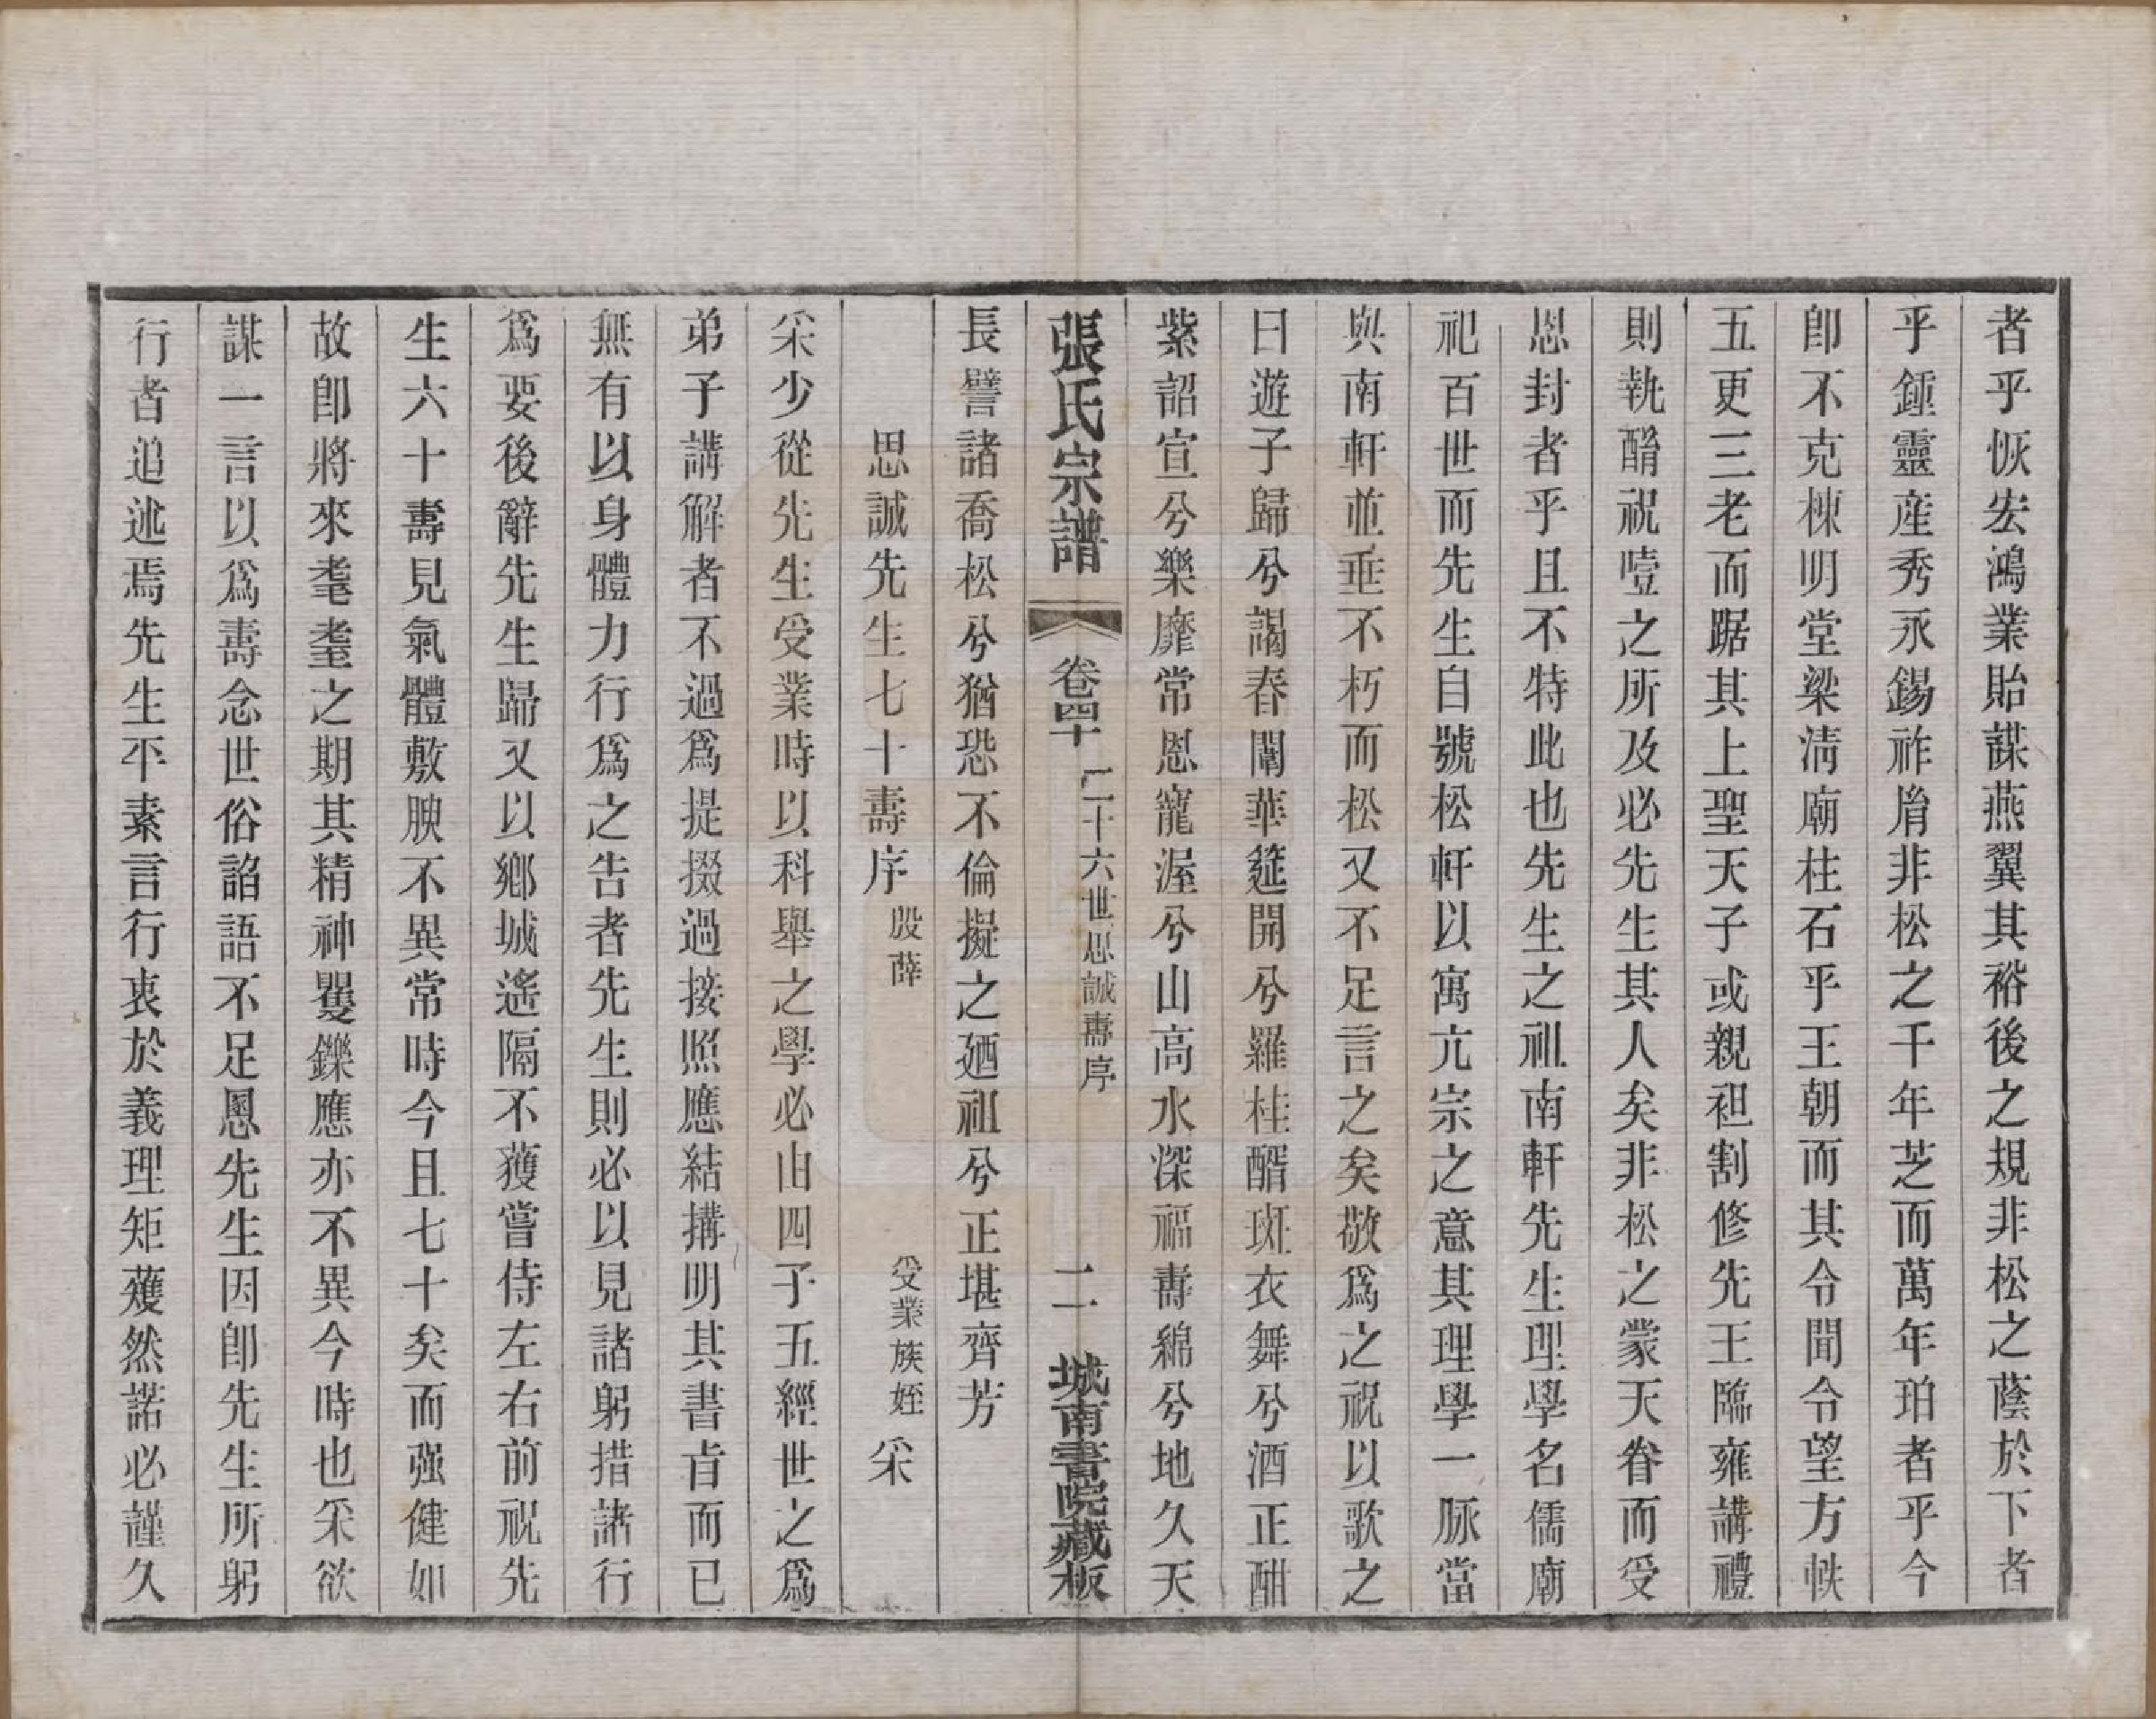 者乎恢宏鴻業貽謀燕翼其裕後之規非松之蔭於下者
乎鍾靈産秀永錫祚胤非松之千年芝而萬年珀者乎今
卽不克棟明堂梁淸廟柱石乎王朝而其令聞令望方帙
五更三老而踞其上聖天子或親袒割修先王臨雍講禮
則執酳祝噎之所及必先生其人矣非松之蒙天眷而受
恩封者乎且不特此也先生之祖南軒先生理學名儒廟
祀百世而先生自號松軒以寓亢宗之意其理學一脈當
與南軒並垂不朽而松又不足言之矣敬爲之祝以歌之
曰遊子歸兮謁春闈華筵開兮羅桂醑斑衣舞兮酒正酣
紫詔宣兮樂靡常恩寵渥兮山高水深福壽綿兮地久天
張氏宗譜 卷四十 二十六世思誠壽序 二 城南書院藏板
長譬諸喬松兮猶恐不倫擬之廼祖兮正堪齊芳
思誠先生七十壽序 殷薛 受業族姪 寀
寀少從先生受業時以科舉之學必由四子五經世之爲
弟子講解者不過爲提掇過接照應結搆明其書㫖而已
無有以身體力行爲之告者先生則必以見諸躬措諸行
爲要後辭先生歸又以鄕城遙隔不獲嘗侍左右前祝先
生六十壽見氣體敷腴不異常時今且七十矣而强健如
故卽將來耄耋之期其精神矍鑠應亦不異今時也寀欲
謀一言以爲壽念世俗諂語不足慁先生因卽先生所躬
行者追述焉先生平素言行衷於義理矩矱然諾必謹久